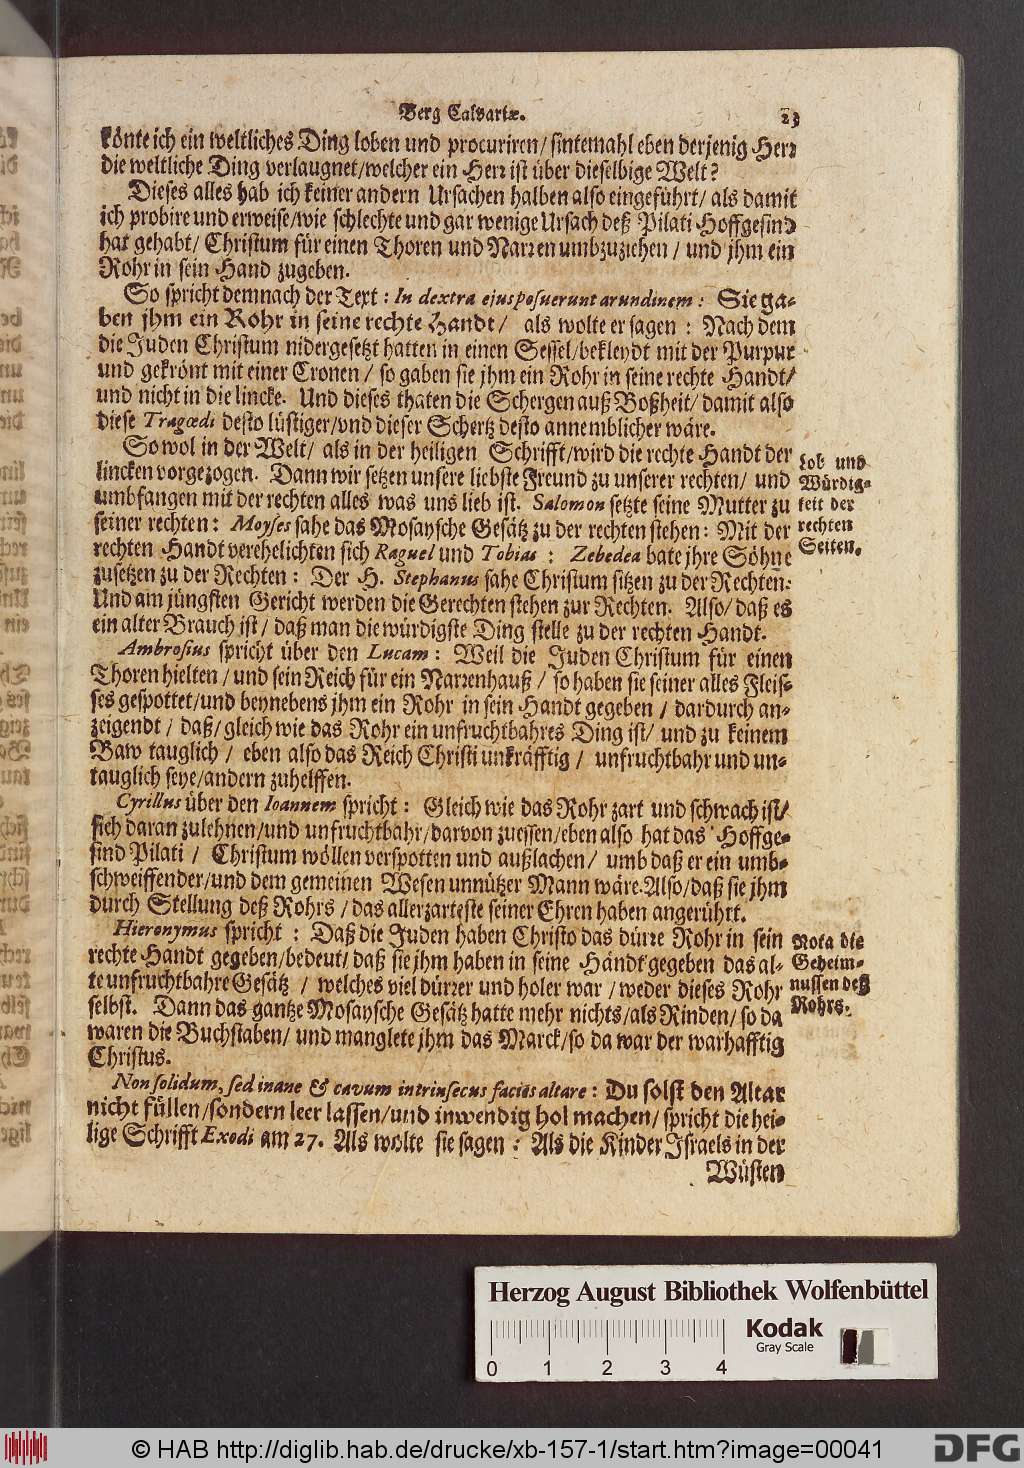 Berg Calvariæ. 23
könte ich ein weltliches Ding loben und procuriren/ sintemahl eben derjenig Herr
die weltliche Ding verlaugnet/welcher ein Herr ist über dieselbige Welt?
Dieses alles hab ich keiner andern Ursachen halben also eingeführt/ als damit
ich probire und erweise/wie schlechte und gar wenige Ursach deß Pilati Hoffgesind
hat gehabt/ Christum für einen Thoren und Narren umbzuziehen / und jhm ein
Rohr in sein Hand zugeben.
So spricht demnach der Text: In dextra ejus posuerunt arundinem: Sie ga-
ben jhm ein Rohr in seine rechte Handt/ als wolte er sagen: Nach dem
die Juden Christum nidergesetzt hatten in einen Sessel/bekleydt mit der Purpur
und gekrönt mit einer Cronen / so gaben sie jhm ein Rohr in seine rechte Handt/
und nicht in die lincke. Und dieses thaten die Schergen auß Boßheit/ damit also
diese Tragœdi desto lüstiger/vnd dieser Schertz desto annemblicher wäre.
So wol in der Welt/ als in der heiligen Schrifft/wird die rechte Handt der
lincken vorgezogen. Dann wir setzen unsere liebste Freund zu unserer rechten/ und
umbfangen mit der rechten alles was uns lieb ist. Salomon setzte seine Mutter zu
seiner rechten: Moyses sahe das Mosaysche Gesätz zu der rechten stehen: Mit der
rechten Handt verehelichten sich Raguel und Tobias: Zebedea bate jhre Söhne
zusetzen zu der Rechten: Der H. Stephanus sahe Christum sitzen zu der Rechten:
Und am jüngsten Gericht werden die Gerechten stehen zur Rechten. Also/ daß es
ein alter Brauch ist/ daß man die würdigste Ding stelle zu der rechten Handt.
Lob und
Würdig-
keit der
rechten
Seiten.
Ambrosius spricht über den Lucam: Weil die Juden Christum für einen
Thoren hielten / und sein Reich für ein Narrenhauß / so haben sie seiner alles Fleis-
ses gespottet/und beynebens jhm ein Rohr in sein Handt gegeben / dardurch an-
zeigendt / daß/ gleich wie das Rohr ein unfruchtbahres Ding ist/ und zu keinem
Baw tauglich / eben also das Reich Christi unkräfftig / unfruchtbahr und un-
tauglich seye/andern zuhelffen.
Cyrillus über den Ioannem spricht: Gleich wie das Rohr zart und schwach ist/
sich daran zulehnen/und unfruchtbahr/darvon zuessen/eben also hat das Hoffge-
sind Pilati / Christum wöllen verspotten und außlachen/ umb daß er ein umb-
schweiffender/und dem gemeinen Wesen unnützer Mann wäre. Also/daß sie jhm
durch Stellung deß Rohrs / das allerzarteste seiner Ehren haben angerührt.
Hieronymus spricht: Daß die Juden haben Christo das dürre Rohr in sein
rechte Handt gegeben/bedeut/ daß sie jhm haben in seine Händt gegeben das al-
te unfruchtbahre Gesätz / welches viel dürrer und holer war / weder dieses Rohr
selbst. Dann das gantze Mosaysche Gesätz hatte mehr nichts/als Rinden/ so da
waren die Buchstaben/ und manglete jhm das Marck/so da war der warhafftig
Christus.
Nota die
Geheim-
nussen deß
Rohrs.
Non solidum, sed inane & cavum intrinsecus facies altare: Du solst den Altar
nicht füllen/sondern leer lassen/und inwendig hol machen/ spricht die hei-
lige Schrifft Exodi am 27. Als wolte sie sagen: Als die Kinder Israels in der
Wüsten
Herzog August Bibliothek Wolfenbüttel
Kodak
Gray Scale
0 1 2 3 4
© HAB http://diglib.hab.de/drucke/xb-157-1/start.htm?image=00041
DFG